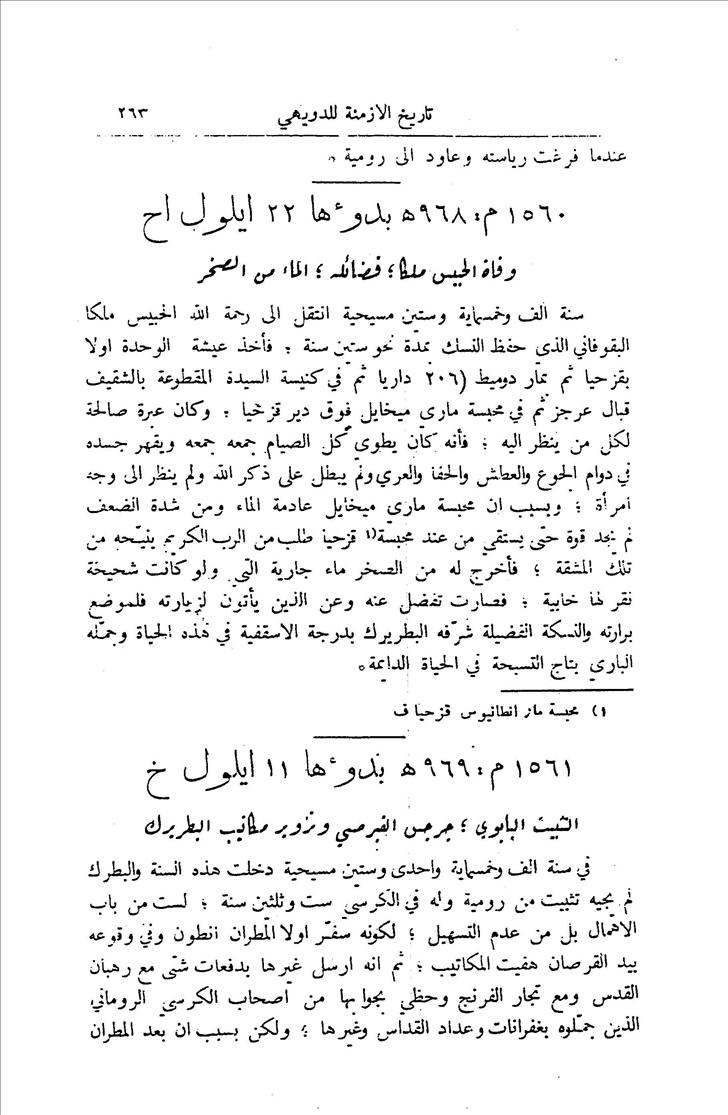 تاريخ الازمنة للدويهي ٢٦٣
عندما فرغت رياسته وعاود الى رومية ٠
١٥٦٠ م : ٩٦٨ ه بدوءها ٢٢ ايلول اح
وفاة الحبيس ملكا ؛ فضائله ؛ الماء من الصخر
سنة الف وخمسماية وستين مسيحية انتقل الى رحمة الله الحبيس ملكا
البقوفاني الذي حفظ النسك بمدة نحو ستين سنة ؛ فأخذ عيشة الوحدة اولا
بقزحيا ثم بمار دوميط (٢٠٦ داريا ثم في كنيسة السيدة المقطوعة بالشقيف
قبال عرجز ثم في محبسة ماري ميخايل فوق دير قزحيا ؛ وكان عبرة صالحة
لكل من ينظر اليه ؛ فأنه كان يطوي كل الصيام جمعه جمعه ويقهر جسده
في دوام الجوع والعطاش والحفا والعري ولم يبطل على ذكر الله ولم ينظر الى وجه
امرأة ؛ وبسبب ان محبسة ماري ميخايل عادمة الماء ومن شدة الضعف
لم يجد قوة حتى يستقي من عند محبسة(١ قزحيا طلب من الرب الكريم ينيّحه من
تلك المشقة ؛ فأخرج له من الصخر ماء جارية التي ولو كانت شحيحة
نقر لها خابية ؛ فصارت تفضل عنه وعن الذين يأتون لزيارته فلموضع
برارته والنسكة الفضيلة شرّفه البطريرك بدرجة الاسقفية في هذه الحياة وجمّله
الباري بتاج التسبحة في الحياة الدايمة ٠
١) محبسة مار انطانيوس قزحيا ف
١٥٦١ م : ٩٦٩ ه بدوءها ١١ ايلول خ
التثبيت البابوي ؛ جرجس القبرصي وتزوير مكاتيب البطريرك
في سنة الف وخمسماية واحدى وستين مسيحية دخلت هذه السنة والبطرك
لم يجيه تثبيت من رومية وله في الكرسي ست وثلثين سنة ؛ لست من باب
الاهمال بل من عدم التسهيل ؛ لكونه سفّر اولا المطران انطون وفي وقوعه
بيد القرصان هفيت المكاتيب ؛ ثم انه ارسل غيرها بدفعات شتى مع رهبان
القدس ومع تجار الفرنج وحظي بجوابها من أصحاب الكرسي الروماني
الذين جمّلوه بغفرانات وعداد القداس وغيرها ؛ ولكن بسبب ان بعد المطران